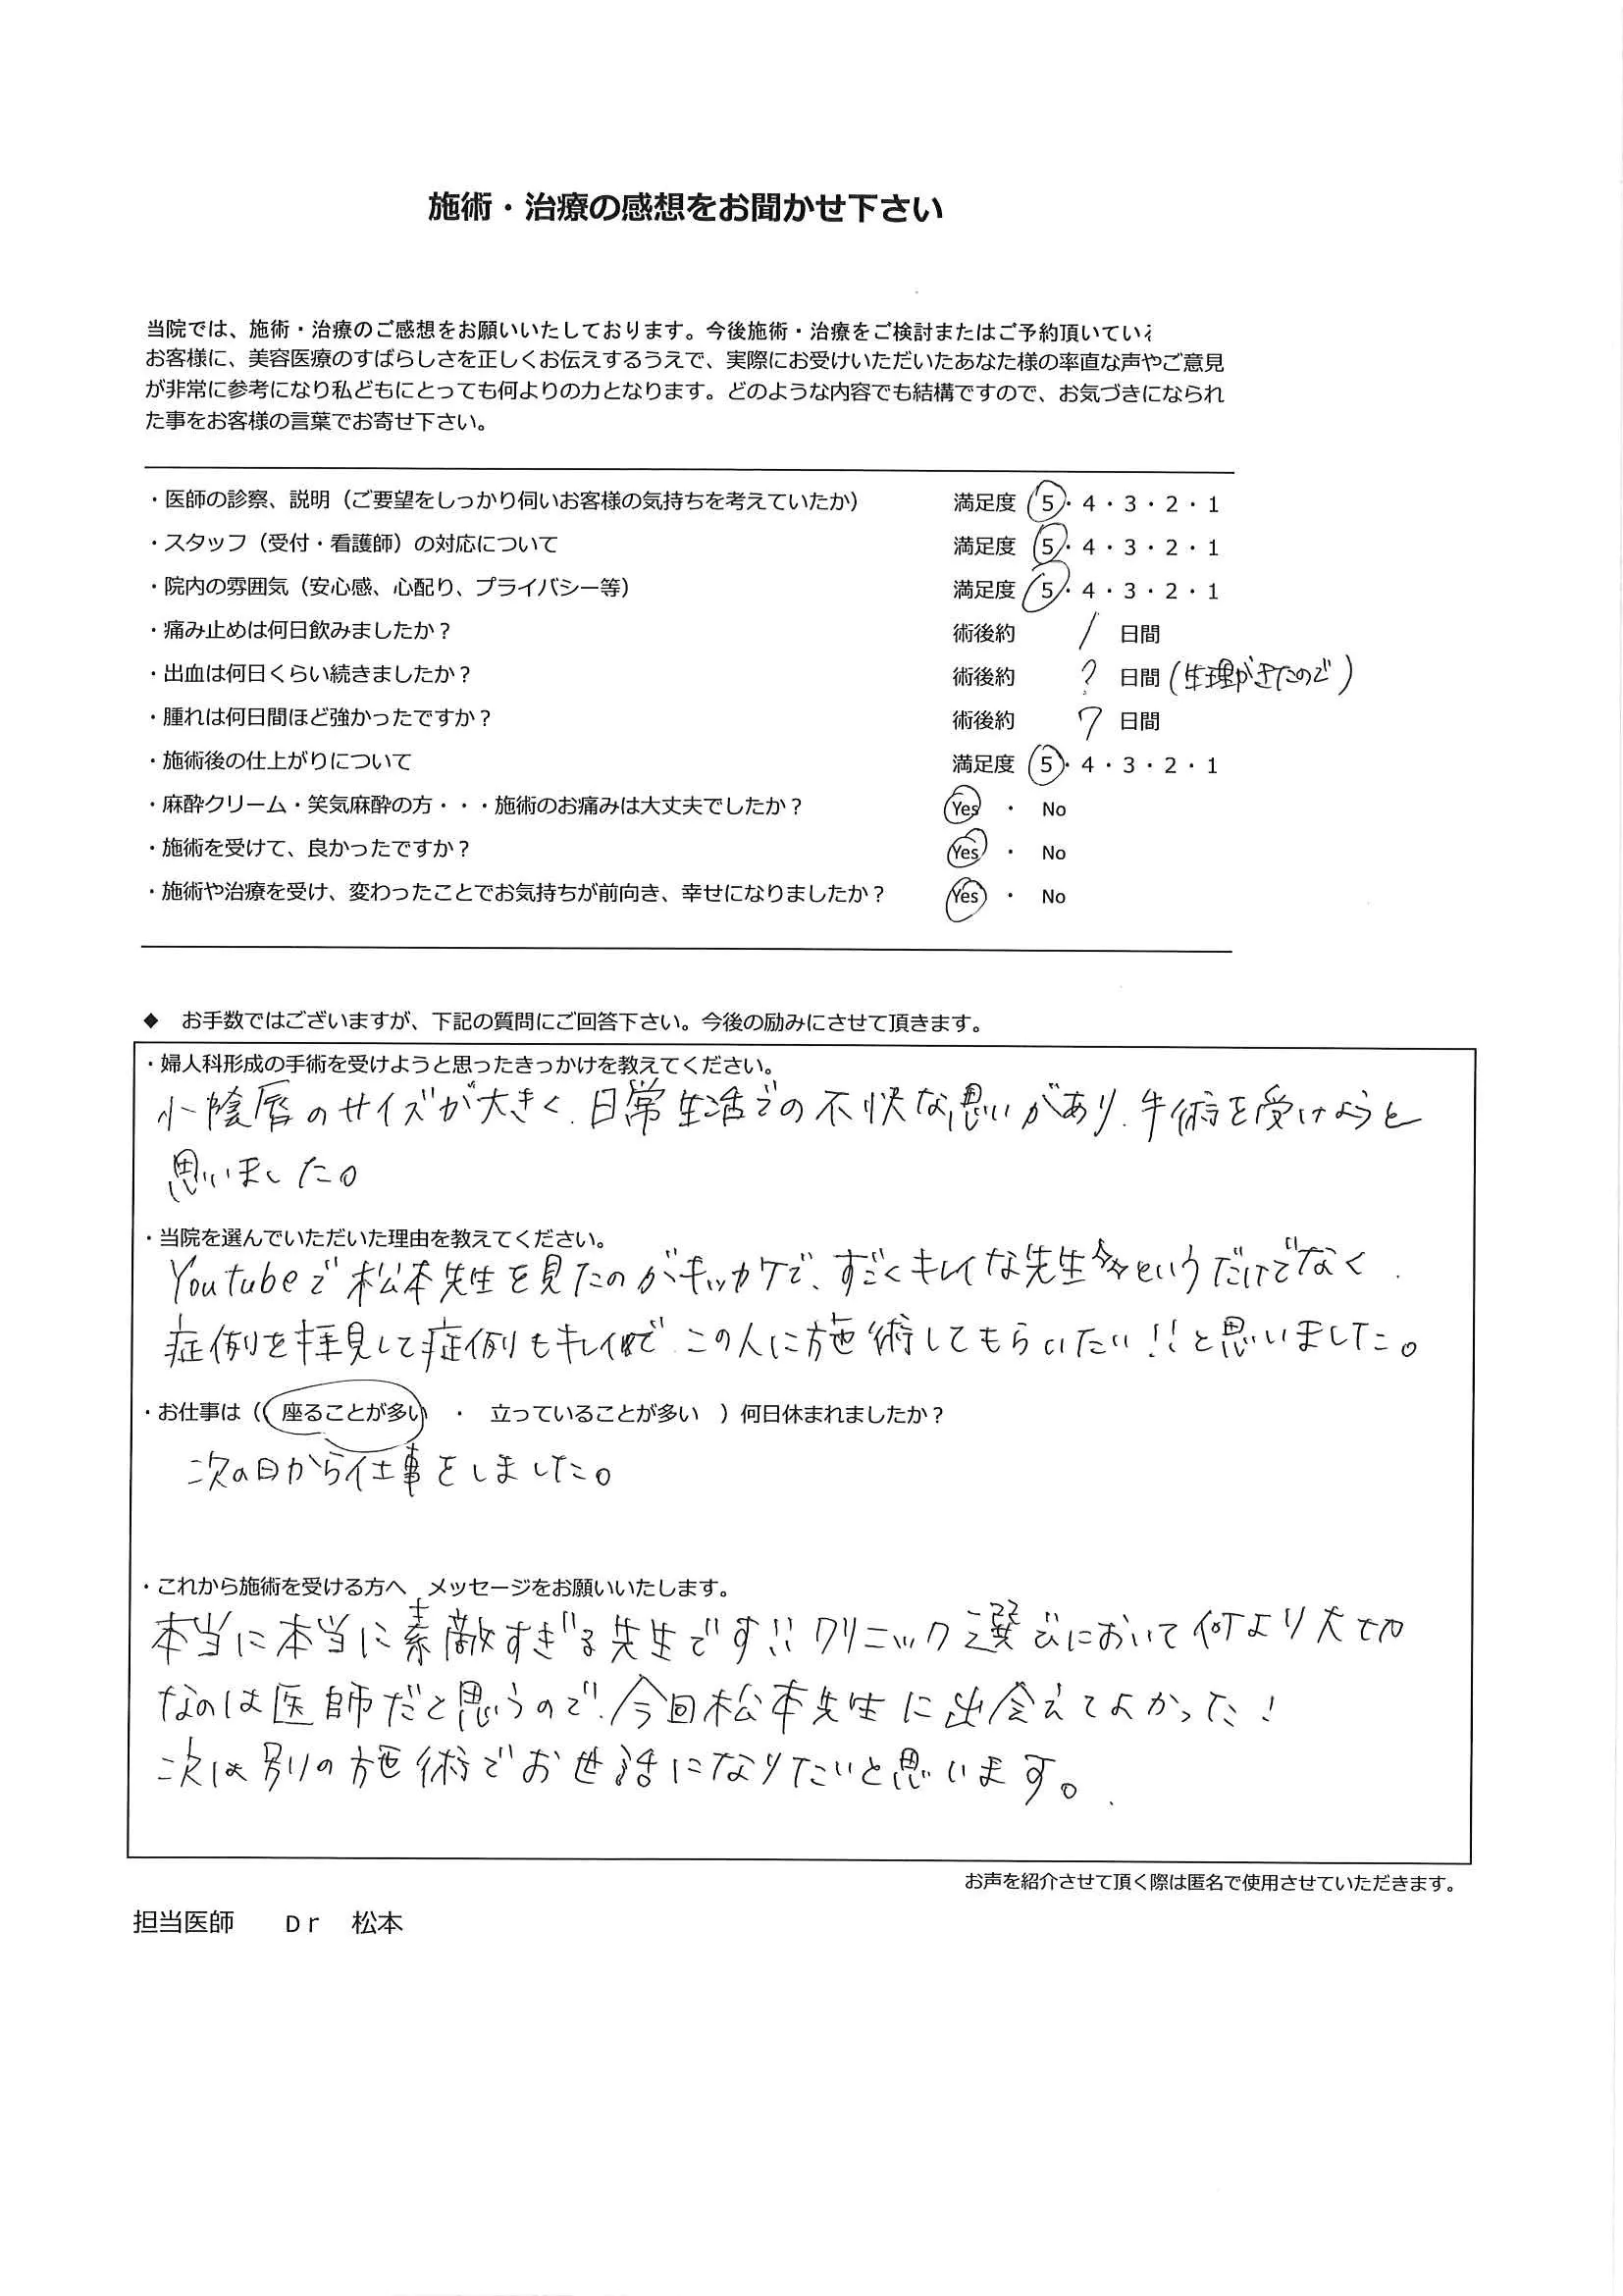 施術・治療の感想をお聞かせ下さい
当院では、施術・治療のご感想をお願いいたしております。今後施術・治療をご検討またはご予約頂いている
お客様に、美容医療のすばらしさを正しくお伝えするうえで、実際にお受けいただいたあなた様の率直な声やご意見
が非常に参考になり私どもにとっても何よりの力となります。どのような内容でも結構ですので、お気づきになられ
た事をお客様の言葉でお寄せ下さい。
・医師の診察、説明（ご要望をしっかり伺いお客様の気持ちを考えていたか） 満足度 5・4・3・2・1
・スタッフ（受付・看護師）の対応について 満足度 5・4・3・2・1
・院内の雰囲気（安心感、心配り、プライバシー等） 満足度 5・4・3・2・1
・痛み止めは何日飲みましたか？ 術後約 1 日間
・出血は何日くらい続きましたか？ 術後約 ? 日間 (生理がきたので)
・腫れは何日間ほど強かったですか？ 術後約 7 日間
・施術後の仕上がりについて 満足度 5・4・3・2・1
・麻酔クリーム・笑気麻酔の方・・・施術のお痛みは大丈夫でしたか？ Yes ・ No
・施術を受けて、良かったですか？ Yes ・ No
・施術や治療を受け、変わったことでお気持ちが前向き、幸せになりましたか？ Yes ・ No
◆ お手数ではございますが、下記の質問にご回答下さい。今後の励みにさせて頂きます。
・婦人科形成の手術を受けようと思ったきっかけを教えてください。
小陰唇のサイズが大きく、日常生活での不快な思いがあり、手術を受けようと
思いました。
・当院を選んでいただいた理由を教えてください。
Youtubeで松本先生を見たのがキッカケで、すごくキレイな先生というだけでなく、
症例を拝見して症例もキレイで、この人に施術してもらいたい!!と思いました。
・お仕事は（ 座ることが多い ・ 立っていることが多い ）何日休まれましたか？
次の日から仕事をしました。
・これから施術を受ける方へ メッセージをお願いいたします。
本当に本当に素敵すぎる先生です!!クリニック選びにおいて何より大切
なのは医師だと思うので、今回松本先生に出会えてよかった！
次は別の施術でお世話になりたいと思います。
お声を紹介させて頂く際は匿名で使用させていただきます。
担当医師 Dr 松本